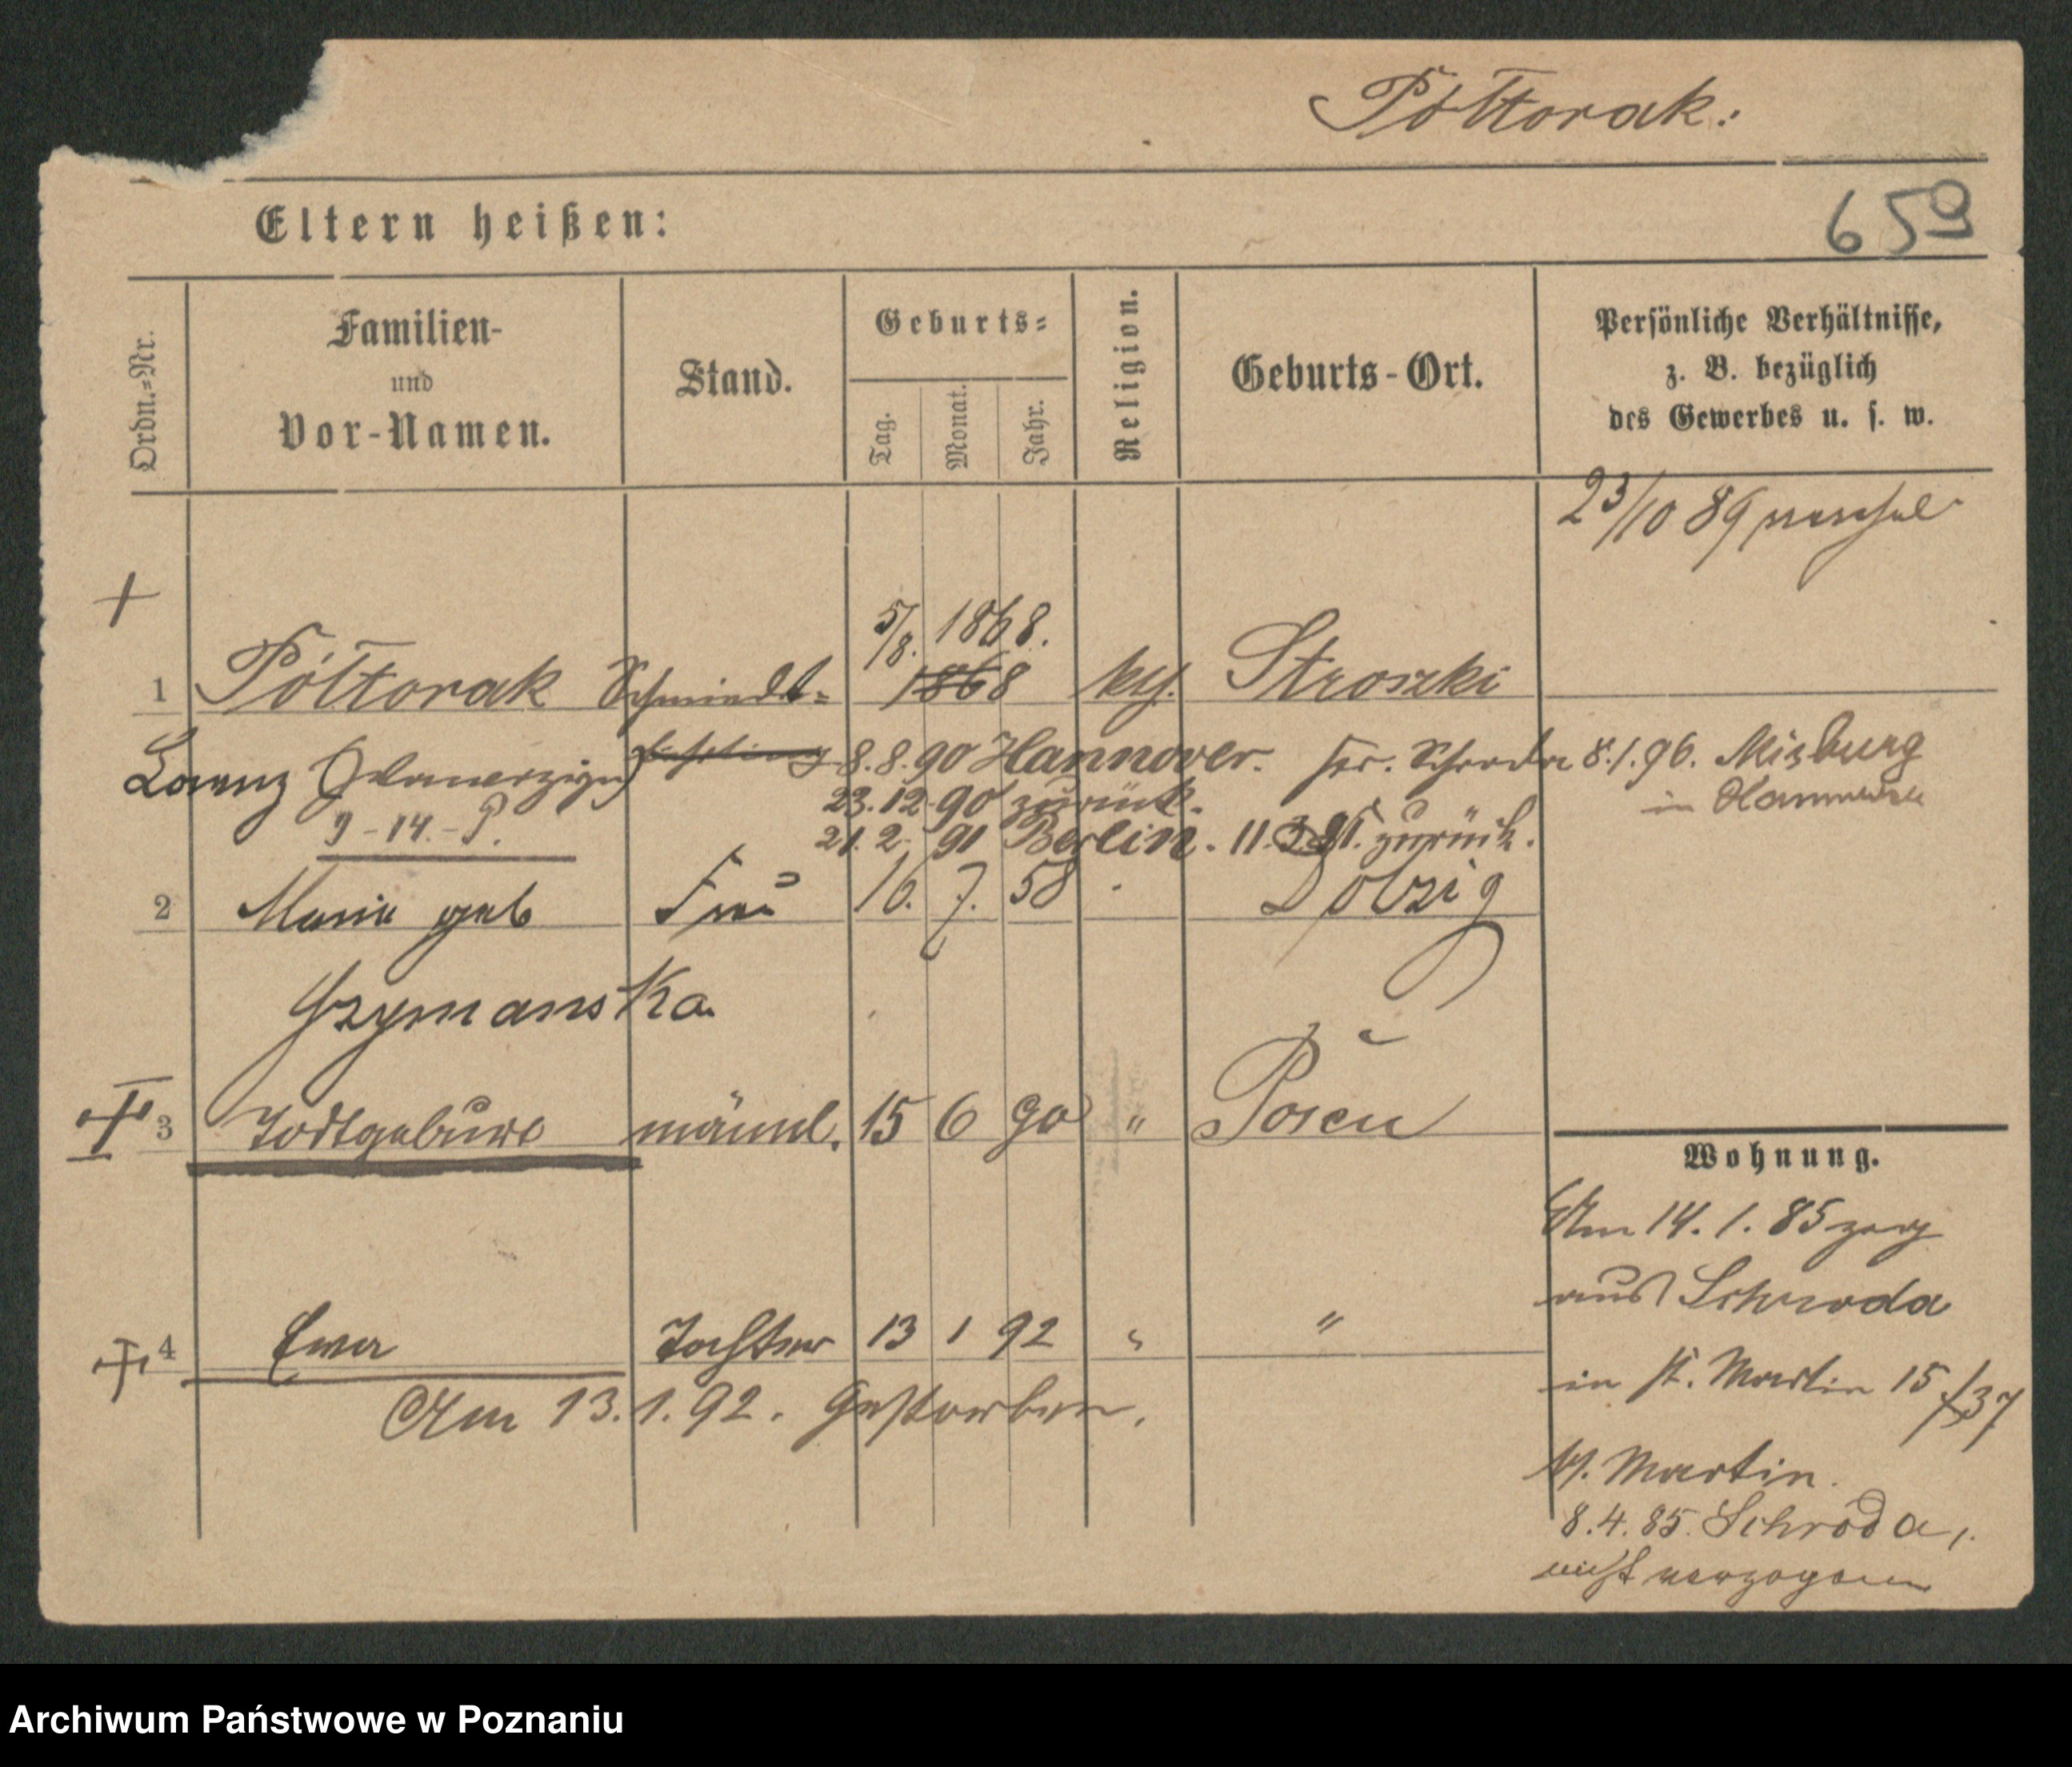 Półtorak.
659
Eltern heißen:
Ordn.=Nr.
Familien-
und
Vor-Namen.
Stand.
Geburts=
Tag.
Monat.
Jahr.
Religion.
Geburts-Ort.
Persönliche Verhältnisse,
z. B. bezüglich
des Gewerbes u. s. w.
23/10 89
5/8. 1868.
1 Półtorak Schmiedt= 1868 kth. Stroszki
Lorenz Lehrling 8.8.90 Hannover. Kr. Schroda 8.1.96. Misburg
23.12.90 zurück. in Hannover
9-14.-P. 21.2. 91 Berlin. 11.3.91. zurück.
2 Maria geb Frau 16. 7. 58 Dolzig
Grzymanska
3 Todtgeburt männl. 15 6 90 " Posen
Wohnung.
Am 14. 1. 85 zog
aus Schroda
4 Ewa Tochter 13 1 92 " "
in St. Martin 15/37
Am 13.1.92. Gestorben.
St. Martin.
8.4.85. Schroda,
nicht verzogen
Archiwum Państwowe w Poznaniu